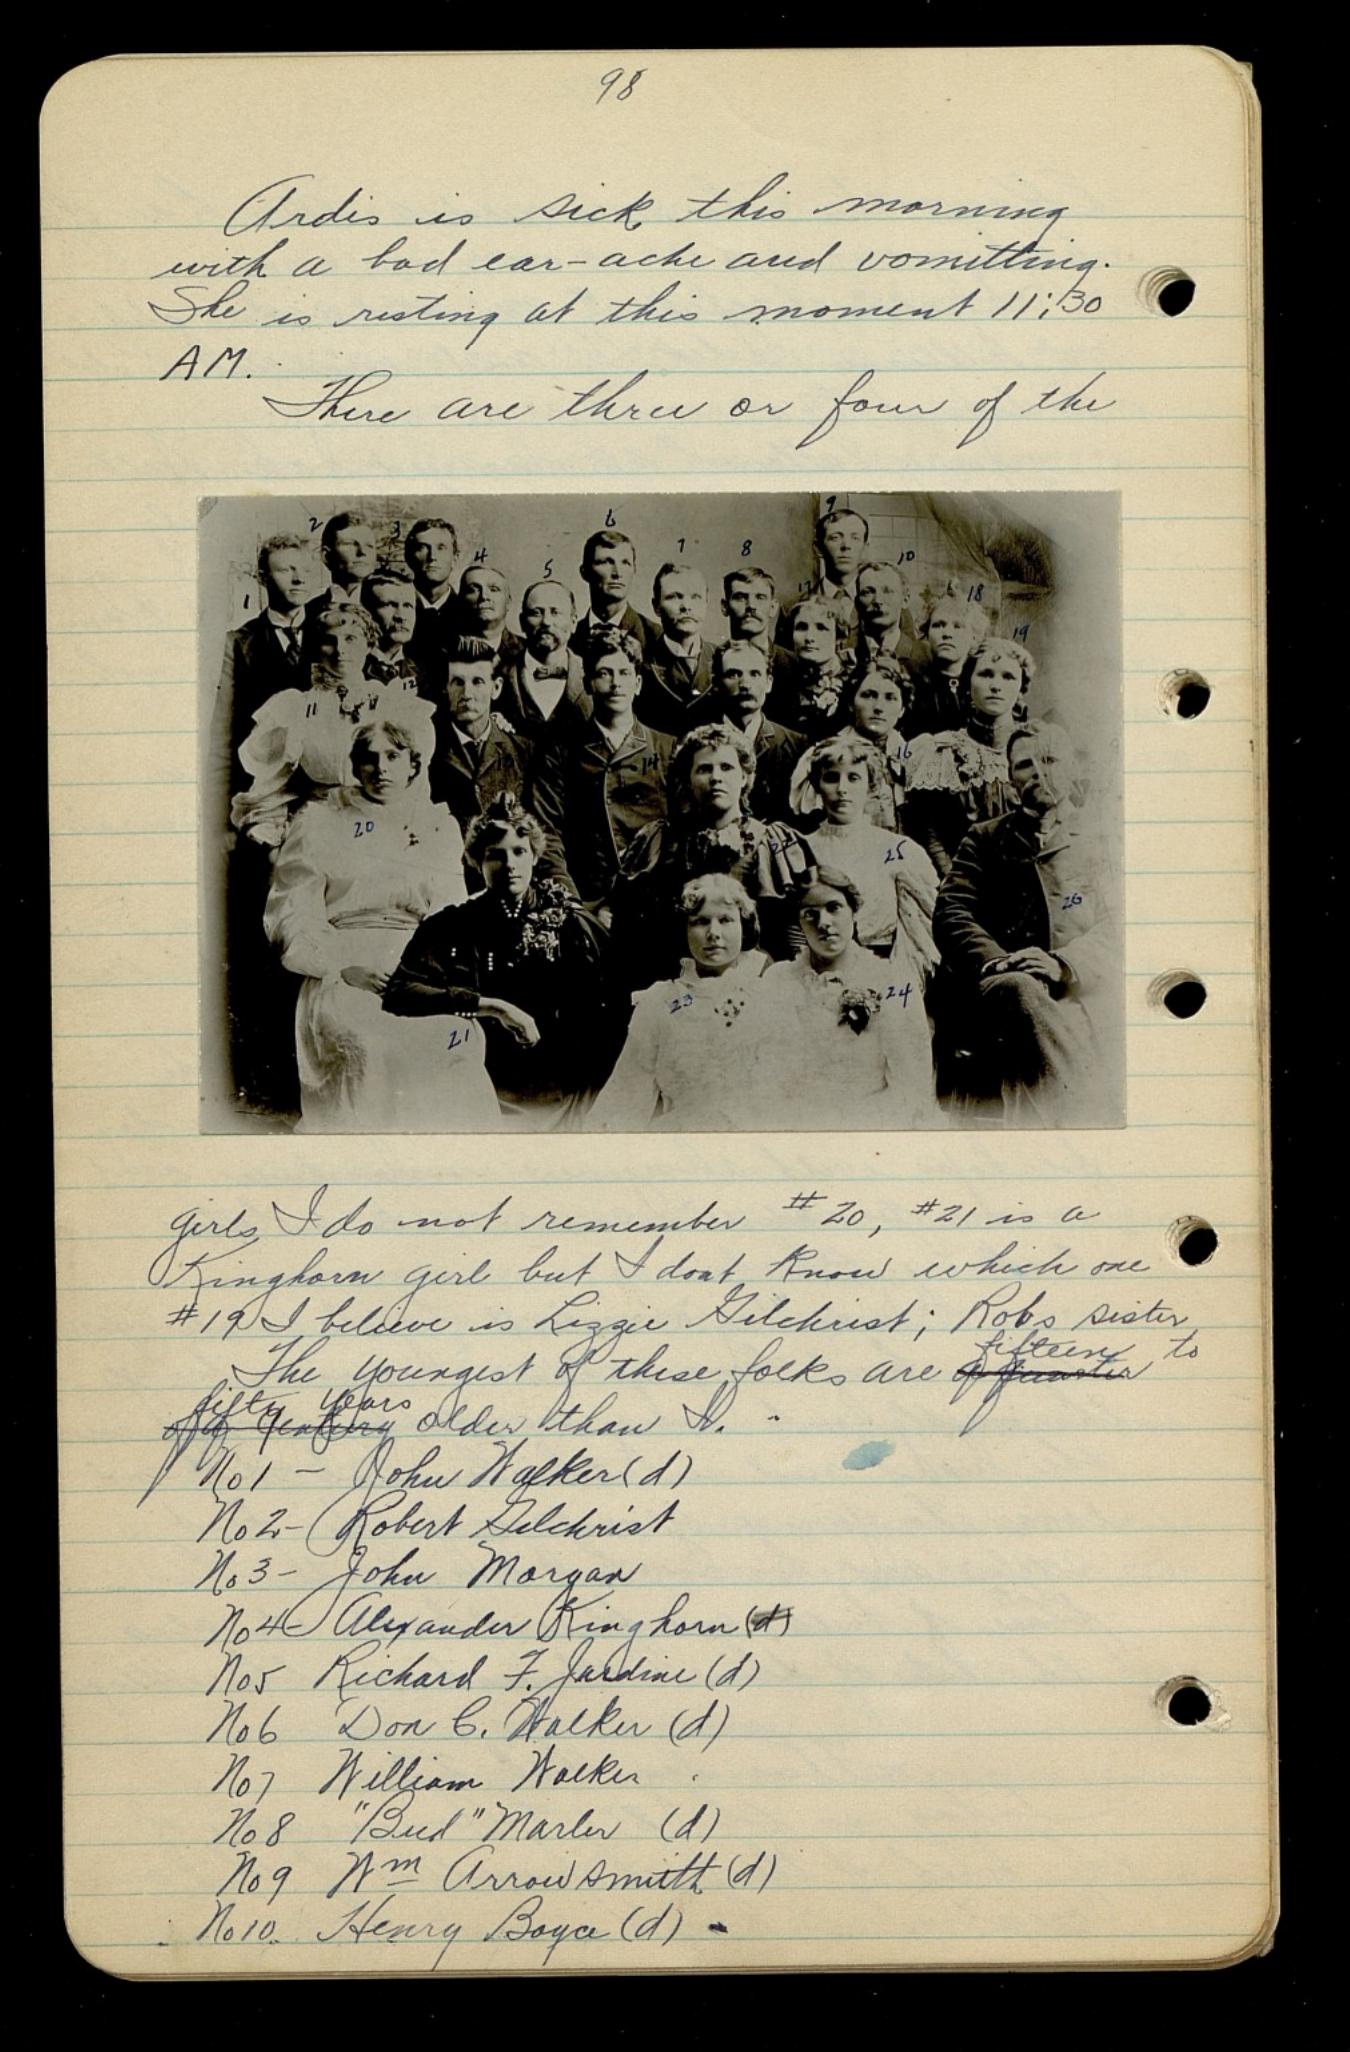 98
Ardis is sick this morning
with a bad ear-ache and vomitting.
She is resting at this moment 11:30
AM.
There are three or four of the
1
2
3
4
5
6
7
8
9
10
11
12
13
14
16
17
18
19
20
21
22
23
24
25
26
girls I do not remember #20, #21 is a
Kinghorn girl but I dont know which one
#19 I believe is Lizzie Gilchrist; Robs sister
The youngest of these folks are a quarter fifteen to
of a century fifty years older than I.
No 1 - John Walker (d)
No 2 - Robert Gilchrist
No 3 - John Morgan
No 4 - Alexander Kinghorn (d)
No 5 Richard F. Jardine (d)
No 6 Don C. Walker (d)
No 7 William Walker
No 8 "Bud" Marler (d)
No 9 Wm Arrowsmith (d)
No 10. Henry Boyce (d)